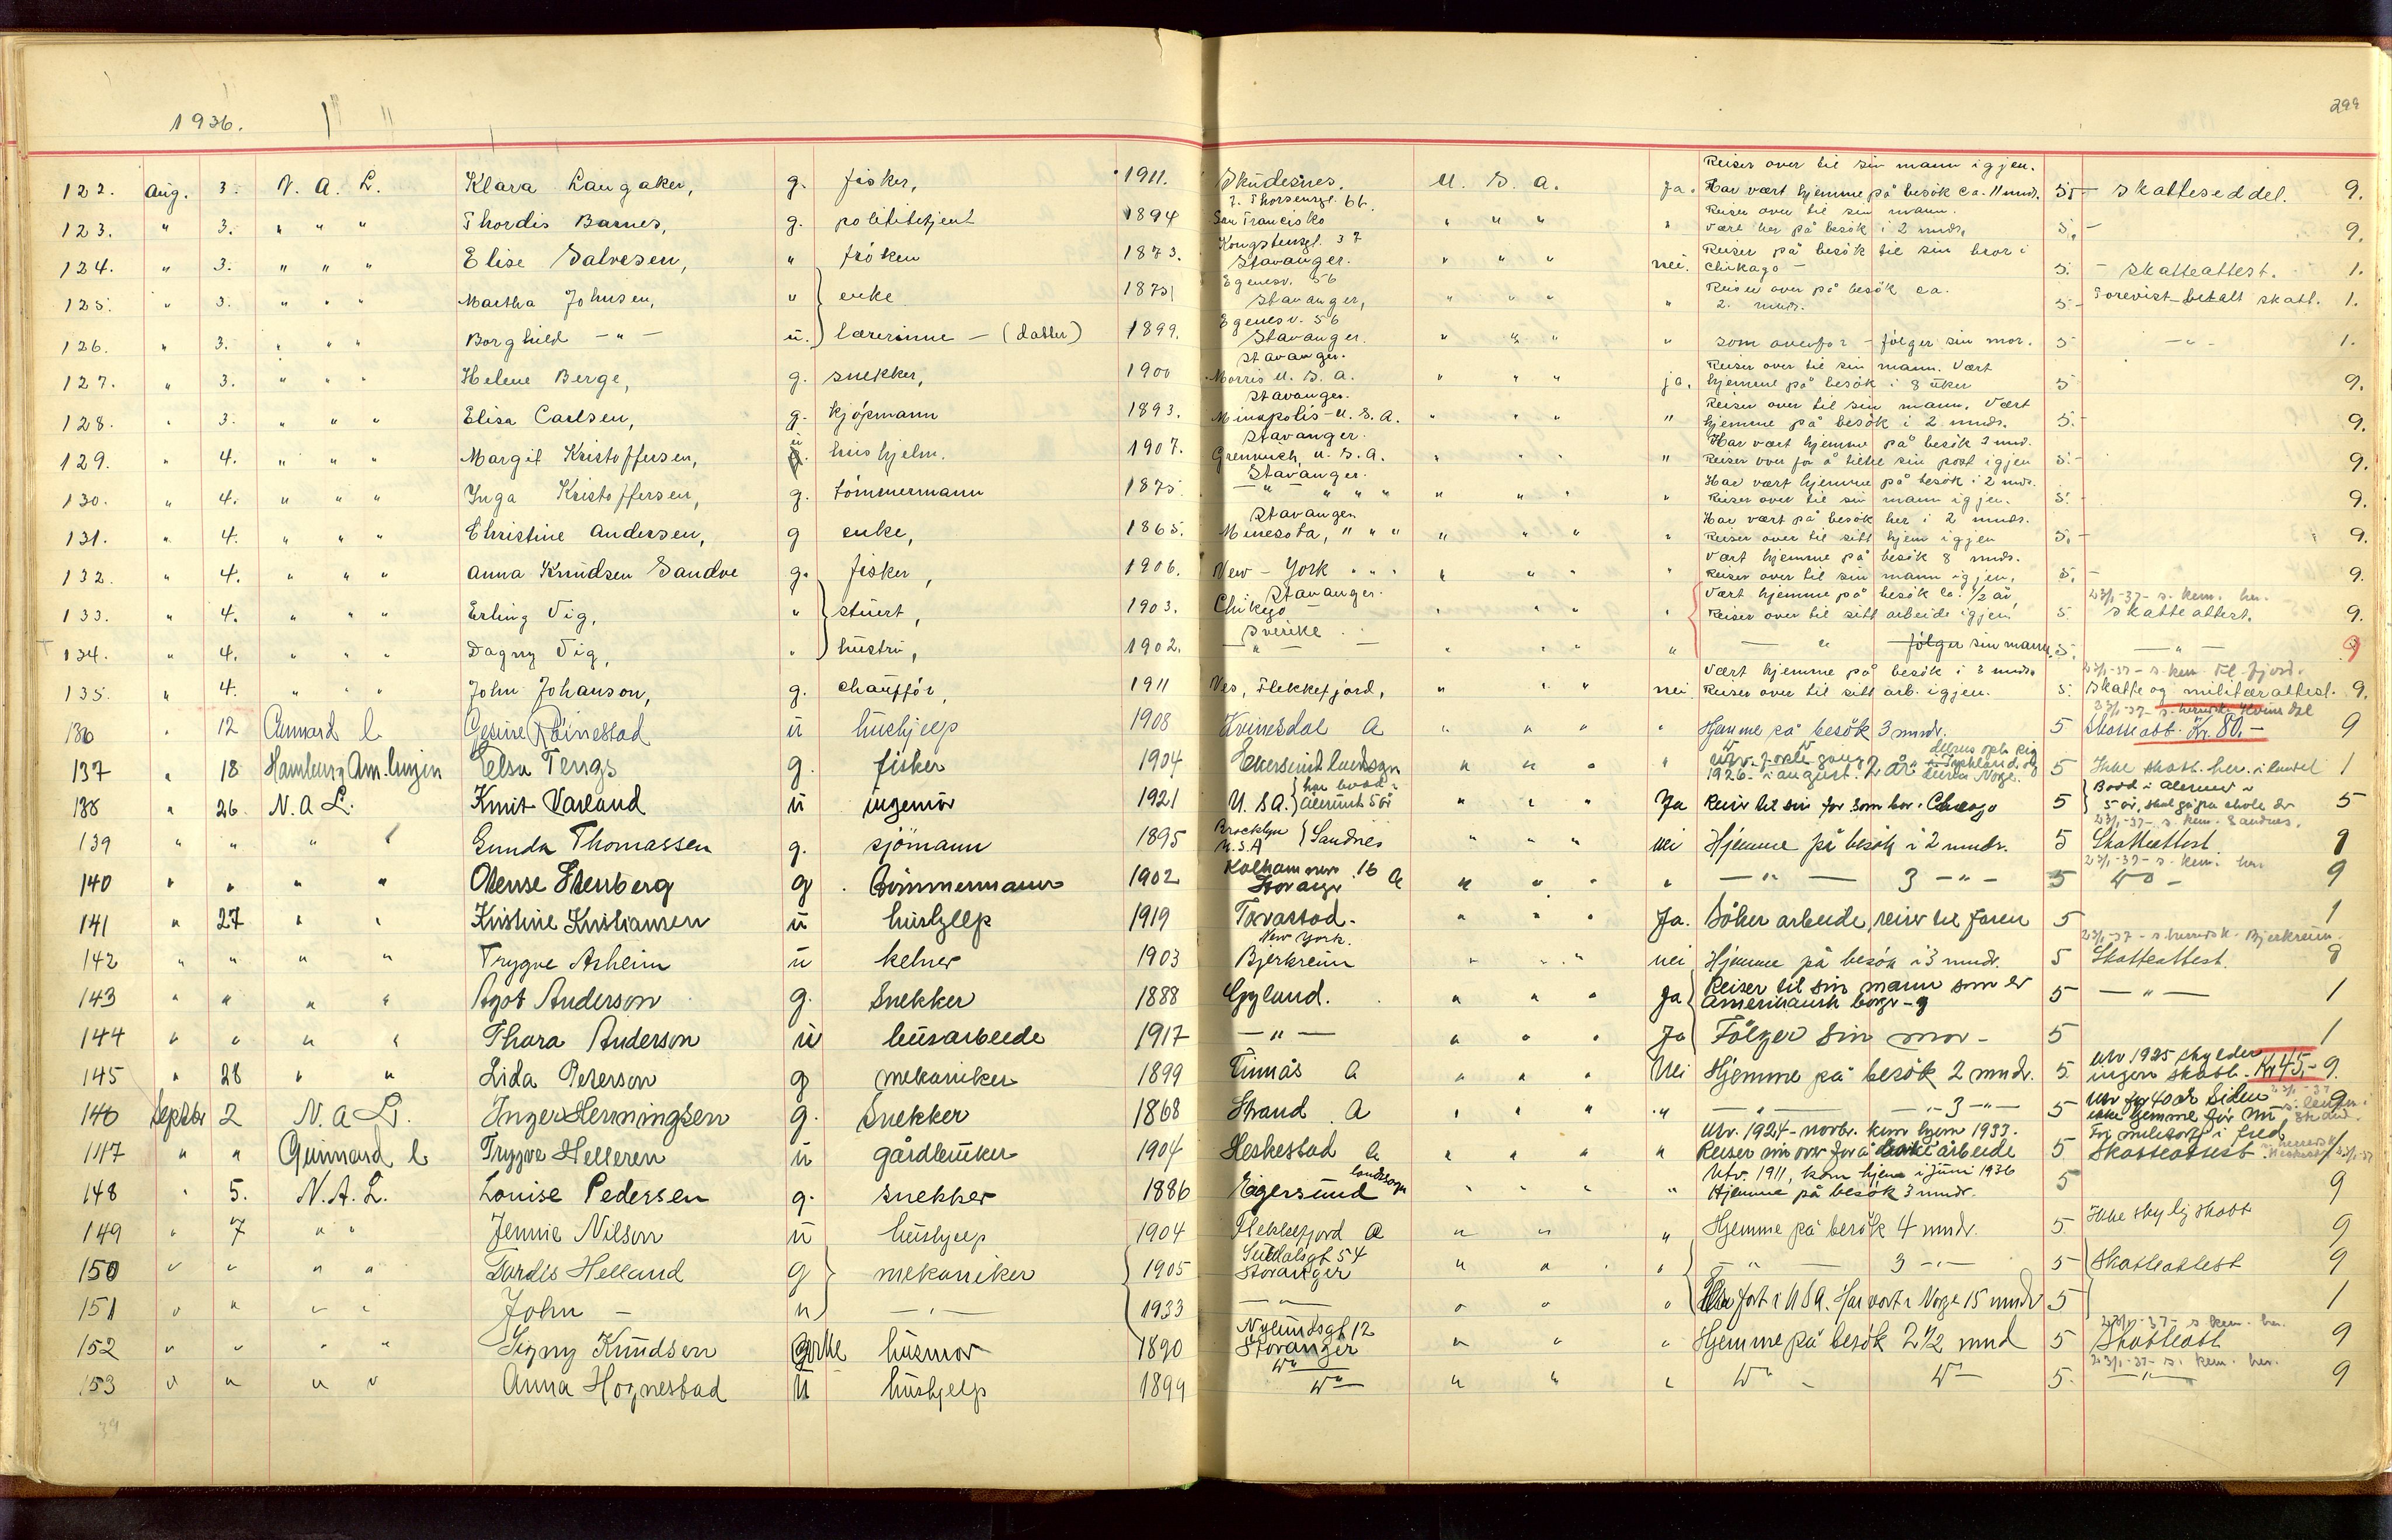 1936.
299
122. Aug. 3. N. A. L. Klara Langaker, g. fisker, 1911. Skudesnes. U. S. A. Ja. Reiser over til sin mann igjen. Har vært hjemme på besök ca. 11 mnd. 5,- skatteseddel. 9.
123. " 3. " " " Thordis Barnes, g. polititjent 1894 San Francisko " " " " Reiser over til sin mann. Vært her på besök i 2 mnds. 5,- 9.
124. " 3. " " " Elise Salvesen, " fröken 1873. Kongstensgt. 37 Stavanger. " " " nei. Reiser på besök til sin bror i Chikago - 5. - skatteattest. 1.
125. " 3. " " " Martha Johnsen, " enke 1875 Egenesv. 56 Stavanger, " " " " Reiser over på besök ca. 2. mnds. 5- Forevist betalt skatt. 1.
126. " 3. " " " Borghild - " - u. lærerinne - (datter) 1899. Egenesv. 56 Stavanger. " " " " som ovenfor - fölger sin mor. 5 - " - 1.
127. " 3. " " " Helene Berge, g. snekker, 1900 Stavanger. Morris U. S. A. " " " ja. Reiser over til sin mann. Vært hjemme på besök i 8 uker 5 9.
128. " 3. " " " Elisa Carlsen, g. kjöpmann 1893. Stavanger. Minapolis - U. S. A. " " " " Reiser over til sin mann. Vært hjemme på besök i 2 mnds. 5. 9.
129. " 4. " " " Margit Kristoffersen, hushjelm. 1907. Stavanger. U. S. A. " " " " Har vært hjemme på besök 3 mnd. Reiser over for å tiltre sin post igjen 5.- 9.
130. " 4. " " " Inga Kristoffersen, g. tömmermann 1875 Stavanger. " " " " " " " " Har vært hjemme på besök i 2 mnd. Reiser over til sin mann igjen. 5.- 9.
131. " 4. " " " Christine Andersen, g enke, 1865. Stavanger. Minesota, " " " " " " " Har vært på besök her i 2 mnds. Reiser over til sitt hjem igjen 5,- 9.
132. " 4. " " " Anna Knudsen Sandve g. fisker, 1906. New-York " " " " " " " Vært hjemme på besök 8 mnds. Reiser over til sin mann igjen. 5,- 9.
133. " 4. " " " Erling Vig, " stuert, 1903. Stavanger. Chikego " " " " Vært hjemme på besök ca. 1/2 år Reiser over til sitt arbeide igjen! 5. 23/1-37- s. kem. her. skatteattest. 9.
134. " 4. " " " Dagny Vig, " hustru, 1902. Sverike - " - " " " " - " - fölger sin mann. 5. - " - 9
135. " 4. " " " John Johanson, g. chaufför, 1911 Nes, Flekkefjord, " " " nei Vært hjemme på besök i 3 mnds. Reiser over til sitt arb. igjen. 5. 23/1-37- s. kem. Fl. fjord. skatte og militærattest. 9.
136 " 12 Cunnard L Gesine u hushjelp 1908 Kvinesdal A " " " " Hjemme på besök 3 mndr. 5 Kr. 80,- 9
137 " 18 Hamburg Am. linjen Elsa Tengs g. fisker 1904 " " " " 1926. i august. 2 år 5 Ikke skatt. her. i landet 1
138 " 26 N. A L. Knut Varland u ingeniör 1921 U. S A. " " " Ja Reiser til sin far som bor i Chicago 5 5 år, skal gå på skole der 5
139 " " " " Gunda Thomassen g. sjömann 1895 Brocklyn U.S.A Sandnes " " " nei Hjemme på besök i 2 mndr. 5 23/1-37- s. kem. Sandnes. Skatteattest. 9
140 " " " " Stenberg g. tömmermann 1902 Kolhammerv. 16 Stavanger A " " " " - " - 3 - " - 5 23/1-37- s. kem. her 9
141 " 27 " " Kristine Kristiansen u hushjelp 1919 Torvastad. " " " Ja. Söker arbeide, reiser til faren 5 1
142 " " " " Trygve Asheim u kelner 1903 New York. Bjerkreim " " " nei Hjemme på besök i 3 mndr. 5 23/1-37- s. herredsk. Bjerkreim. Skatteattest. 9
143 " " " " Agot Anderson g. Snekker 1888 Gyland. " " " Ja Reiser til sin mann som er Amerikansk borger 5 - " - 1
144 " " " " Thora Anderson u husarbeide 1917 - " - " " " Ja Fölger sin mor - 5 1
145 " 28 " " Lida Peterson g mekaniker 1899 Finnås A " " " Nei Hjemme på besök 2 mndr. 5. Utv 1925 skylder ingen skatt. Kr 45,- 9.
146 Septbr 2 N. A L. Inger Hermingsen g. Snekker 1868 Strand A " " " " - " - 3 - " - 5 Utv for 40 år siden ikke hjemme för nu 9
147 " " Cunnard L Trygve Helleren u gårdbruker 1904 Heskestad A " " " " Utv. 1924 - novbr. kom hjem 1933. Reiser nu over for å arbeide 5. Skatteattest 1
148 " 5. N. A. L. Louise Pedersen g. snekker 1886 Egersund landsogn " " " " Utv. 1911, kom hjem i juni 1936 Hjemme på besök 3 mndr. 5 9
149 " 7 " " Jennie Nilson u hushjelp 1904 Flekkefjord A " " " Hjemme på besök 4 mndr. 5. Ikke skyldig skatt 9
150 " " " " Tordis Helland g mekaniker 1905 Stavanger " " " - " - 3 - " - 5 Skatteattest 9
151 " " " " John - u - " - 1933 - " - " " " Er født i U S A. Har vært i Norge 15 mndr 5 1
152 " " " " Signy Knudsen husmor 1890 Nylundsgt 12 Stavanger " " " Hjemme på besök 2 1/2 mnd 5 23/1-37- s kem. her. Skatteatt 9
153 " " " " Anna Hognestad u hushjelp 1899 " " " 5. 23/1-37- s. kem. her. - " - 9